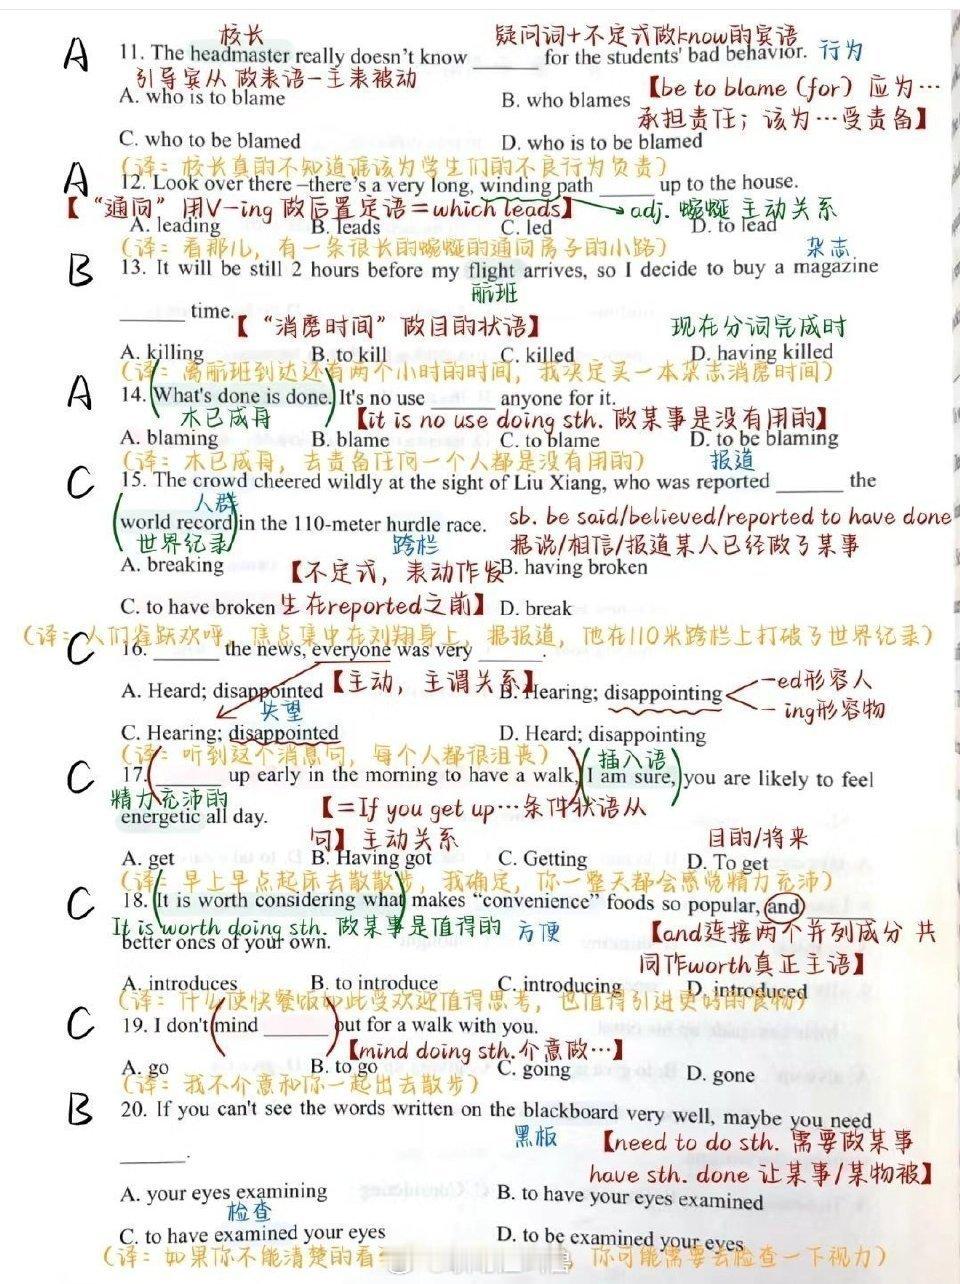 校长 疑问词+不定式做know的宾语
A 11. The headmaster really doesn't know ______ for the students' bad behavior. 行为
引导宾从 做表语-主表被动
A. who is to blame B. who blames 【be to blame (for) 应为…
承担责任; 该为…受责备】
C. who to be blamed D. who is to be blamed
(译: 校长真的不知道谁该为学生们的不良行为负责)
A 12. Look over there –there's a very long, winding path ______ up to the house.
【“通向”用V-ing 做后置定语=which leads】 adj. 蜿蜒 主动关系
A. leading B. leads C. led D. to lead
(译: 看那儿, 有一条很长的蜿蜒的通向房子的小路) 杂志
B 13. It will be still 2 hours before my flight arrives, so I decide to buy a magazine
航班
______ time.
【“消磨时间”做目的状语】 现在分词完成时
A. killing B. to kill C. killed D. having killed
(译: 离航班到达还有两个小时的时间, 我决定买一本杂志消磨时间)
A 14. What's done is done. It's no use ______ anyone for it.
木已成舟 【it is no use doing sth. 做某事是没有用的】
A. blaming B. blame C. to blame D. to be blaming
(译: 木已成舟, 去责备任何一个人都是没有用的) 报道
C 15. The crowd cheered wildly at the sight of Liu Xiang, who was reported ______ the
人群
world record in the 110-meter hurdle race. sb. be said/believed/reported to have done
世界纪录 跨栏 据说/相信/报道某人已经做了某事
A. breaking 【不定式, 表动作发 B. having broken
C. to have broken 生在reported之前】 D. break
(译: 人们雀跃欢呼, 焦点集中在刘翔身上, 据报道, 他在110米跨栏上打破了世界纪录)
C 16. ______ the news, everyone was very ______.
A. Heard; disappointed 【主动, 主谓关系】 B. Hearing; disappointing -ed形容人
失望 -ing形容物
C. Hearing; disappointed D. Heard; disappointing
(译: 听到这个消息句, 每个人都很沮丧) 插入语
C 17. ______ up early in the morning to have a walk, I am sure, you are likely to feel
精力充沛的 【=If you get up…条件状语从
energetic all day.
句】主动关系 目的/将来
A. get B. Having got C. Getting D. To get
(译: 早上早点起床去散散步, 我确定, 你一整天都会感觉精力充沛)
C 18. It is worth considering what makes “convenience” foods so popular, and ______
It is worth doing sth. 做某事是值得的 方便 【and连接两个并列成分 共
better ones of your own.
同作worth真正主语】
A. introduces B. to introduce C. introducing D. introduced
(译: 什么使快餐饭如此受欢迎值得思考, 也值得引进更好的食物)
C 19. I don't mind ______ out for a walk with you.
【mind doing sth.介意做…】
A. go B. to go C. going D. gone
(译: 我不介意和你一起出去散步)
B 20. If you can't see the words written on the blackboard very well, maybe you need
黑板 【need to do sth. 需要做某事
______.
have sth. done 让某事/某物被】
A. your eyes examining B. to have your eyes examined
检查
C. to have examined your eyes D. to be examined your eyes
(译: 如果你不能清楚的看 你可能需要去检查一下视力)